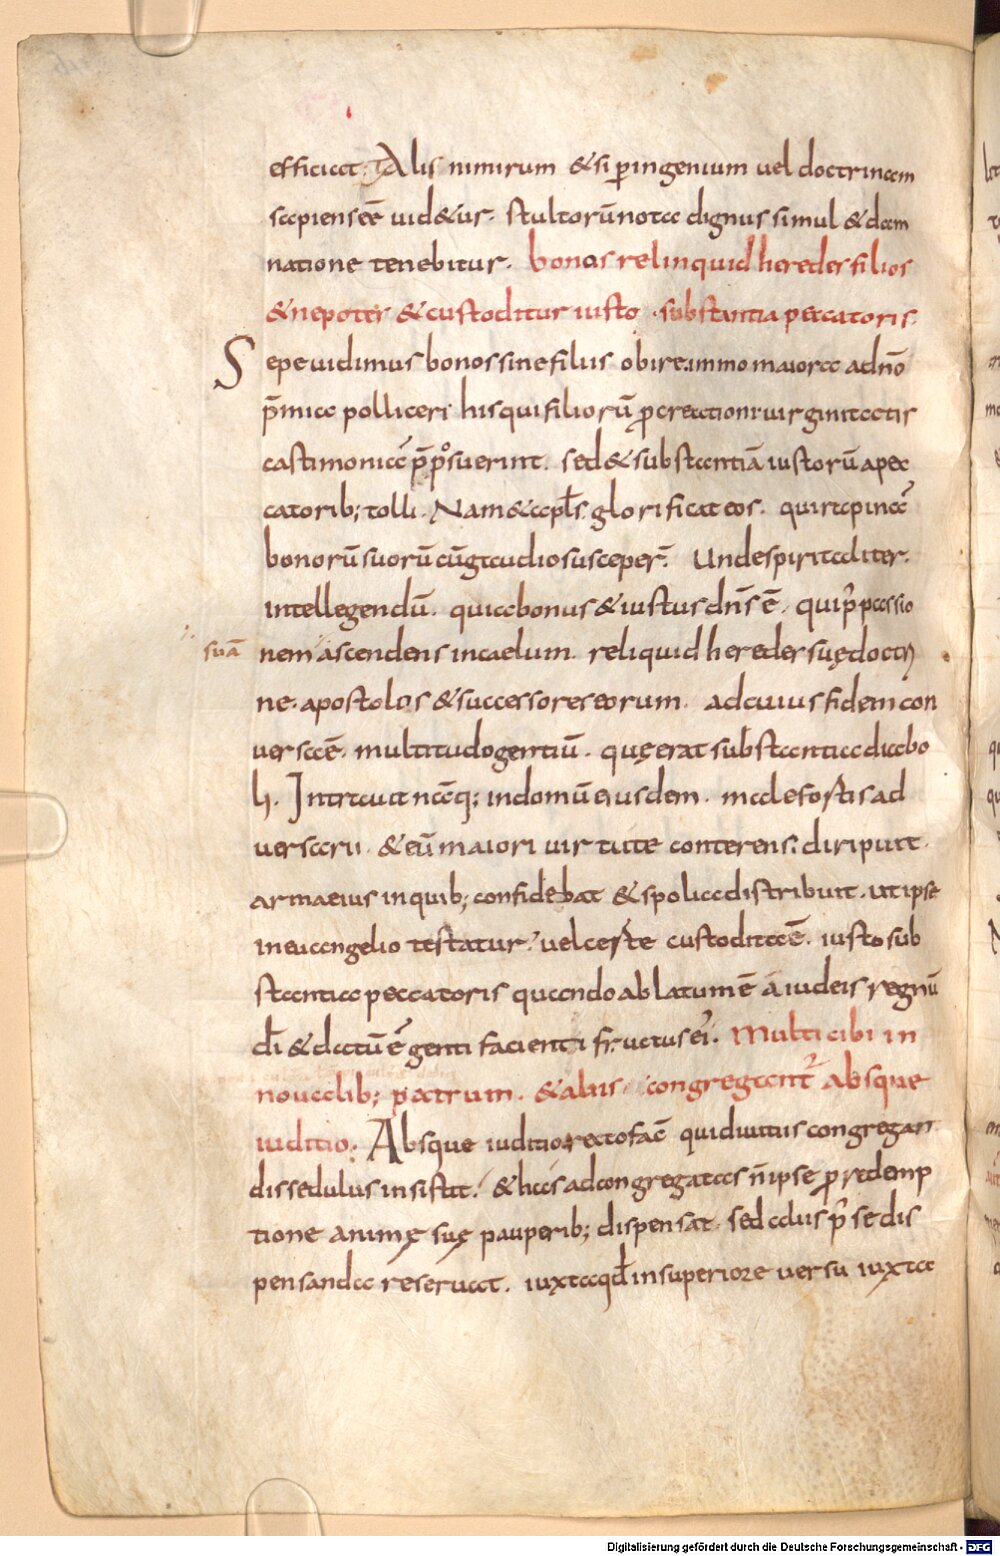 efficiat. Talis nimirum & si ꝑ ingenium uel doctrinam
sapiens eē uid&ur. stultorū nota dignus simul & dam
natione tenebitur. bonus relinquid heredes filios
& nepotes & custoditur iusto. substantia peccatoris.
Sepe uidimus bonos sine filiis obire. immo maiora ad nō
p̄mia polliceri his qui filiorū ꝓcreationi uirginitatis
castimoniā p̄pοsuerint. sed & substantiā iustorū a pec
catorib; tolli. Nam & apłs glorificat eos. qui rapinā
bonorū suorū cū gaudio susceper̄. Unde spiritaliter.
intellegendū. quia bonus & iustus dn̄s ē. qui p̱ passio
suā nem ascendens in caelum. reliquid heredes suę doctri
ne. apostolos & successores eorum. ad cuius fidem con
uersa ē. multitudo gentiū. quę erat substantia diabo
li. Intrauit nāq; in domū eiusdem. male fortis ad
uersarii. & eū maiori uirtute conterens. diripuit.
arma eius in quib; confidebat & spolia distribuit. ut ipse
in euangelio testatur. uel certe custodita ē. iusto sub
stantia peccatoris quando ablatum ē a iudeis regnū
dī & datū ē genti facienti fructus ei. Multi cibi in
noualib; patrum. & aliis congregant᷑ absque
iuditio. Absque iuditio recto fac̄ qui diuitiis congregan
dis sedulus insistit. & has ad congregatas n̄ ipse ꝓ redemp
tione animę suę pauperib; dispensat. sed aliis p̱ se dis
pensanda reseruat. iuxta qđ in superiore uersu iuxta
Digitalisierung gefördert durch die Deutsche Forschungsgemeinschaft - DFG